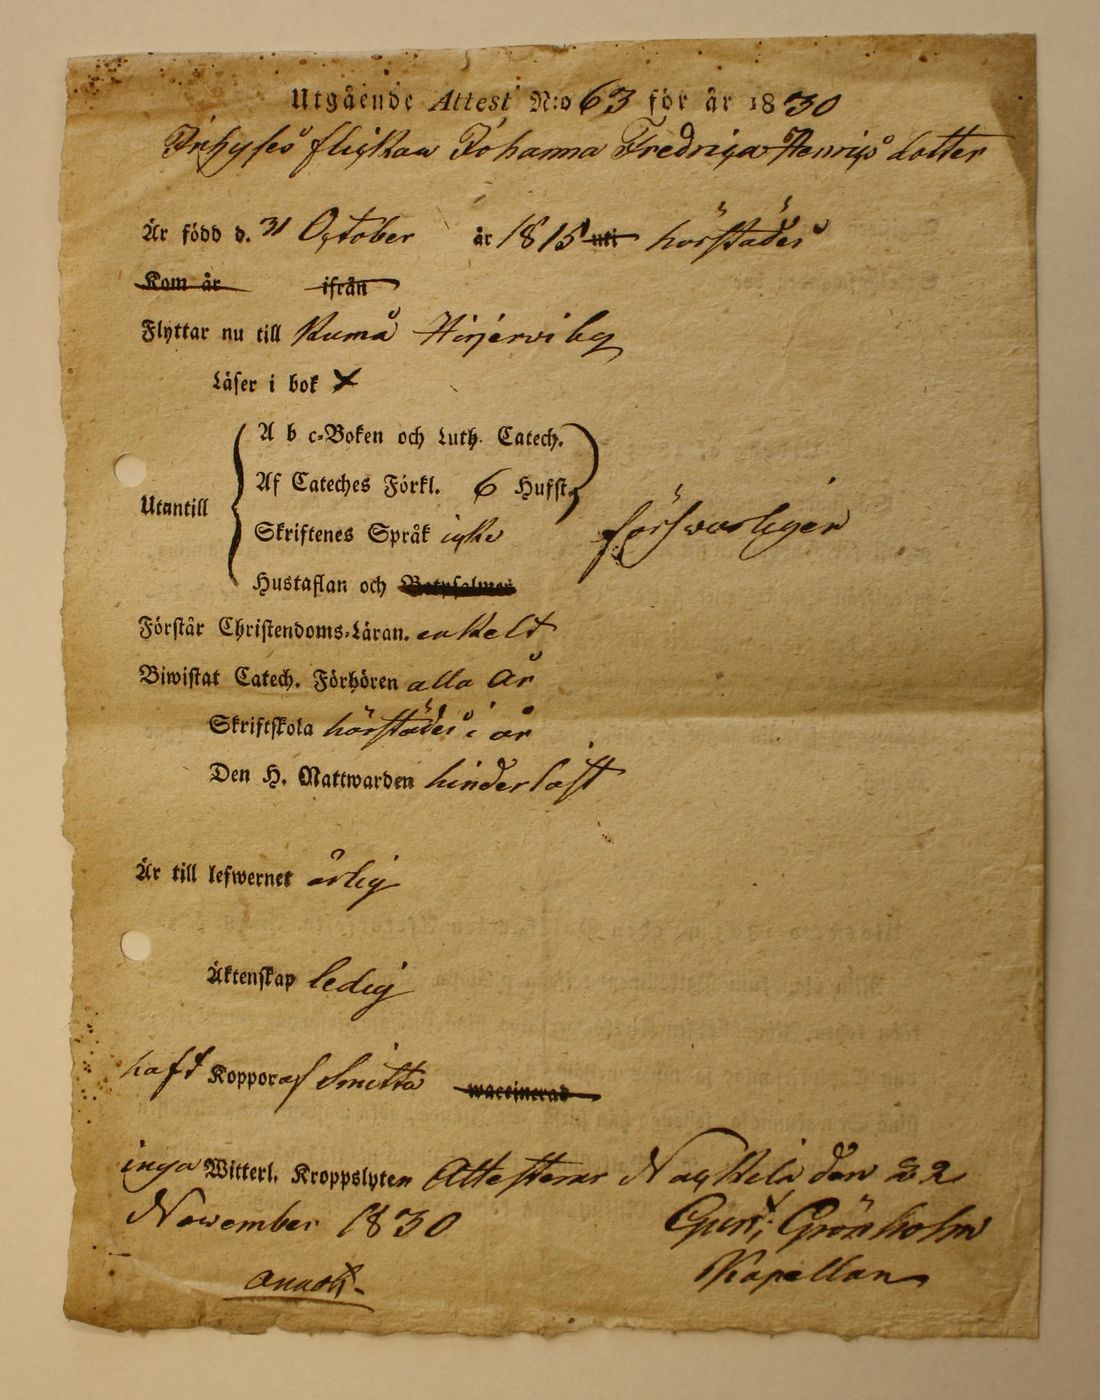 Utgående Attest N:o 63 för år 1830
Inhyses flickan Johanna Fredrica Henrics dotter
Är född d. 31 October år 1815 uti härstädes
Kom år ifrån
Flyttar nu till Kumå Hirjervi by
Läser i bok x
A b c-Boken och Luth. Catech.
Af Cateches Förkl. 6 Hufst.
Utantill
Skriftenes Språk icke försvarligen
Hustaflan och Botpsalmer
Förstår Christendoms-Läran. enkelt
Biwistat Catech. Förhören alla år
Skriftskola härstädes i år
Den H. Nattwarden hinderlöst
Är till lefwernet ärlig
Äktenskap ledig
haft Koppor af Smitta waccinerad
inga Witterl. Kroppslyten Attesterar Nackkila den 22
November 1830 Gust: Grönholm
Kapellan